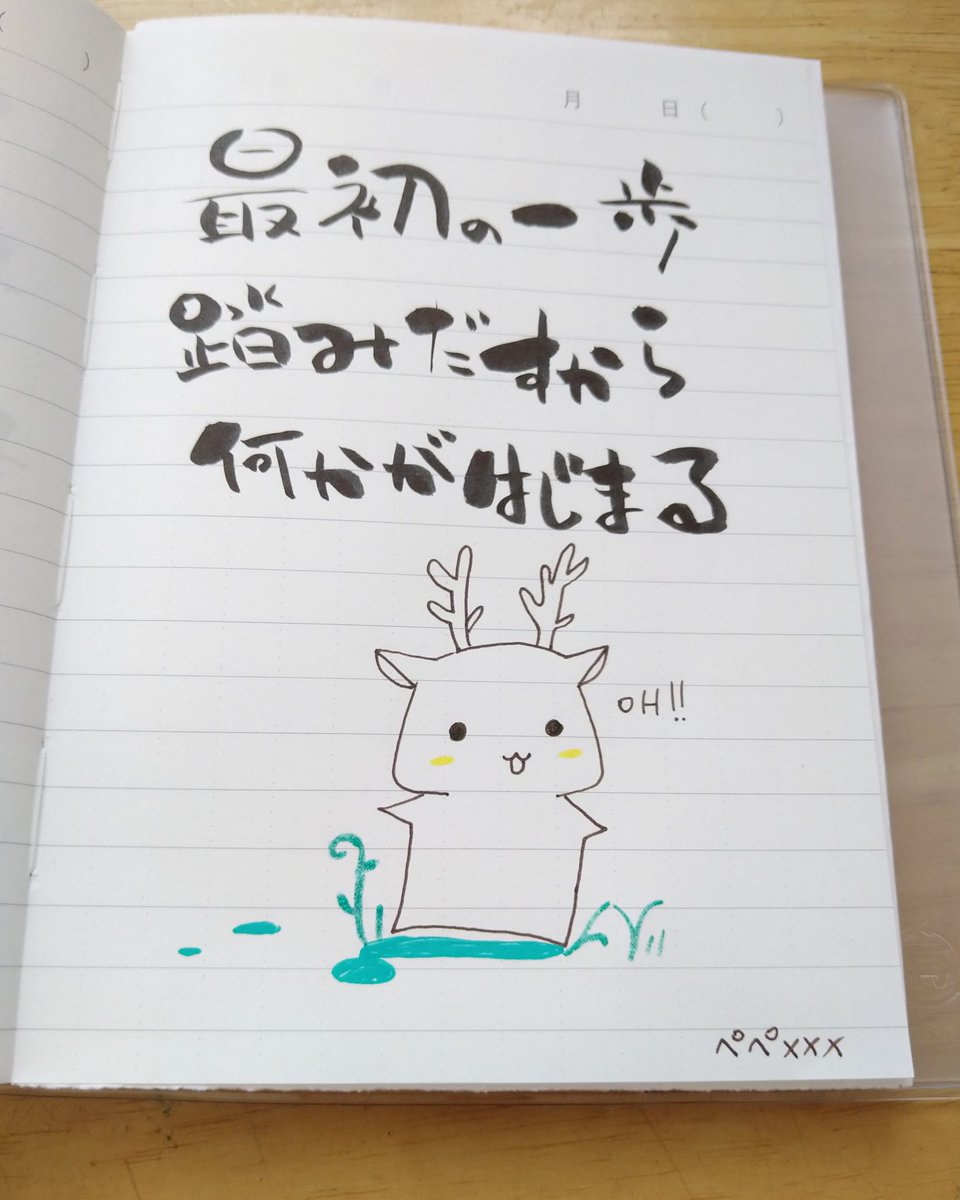 月 日( )
最初の一歩
踏みだすから
何かがはじまる
OH!!
ぺぺxxx